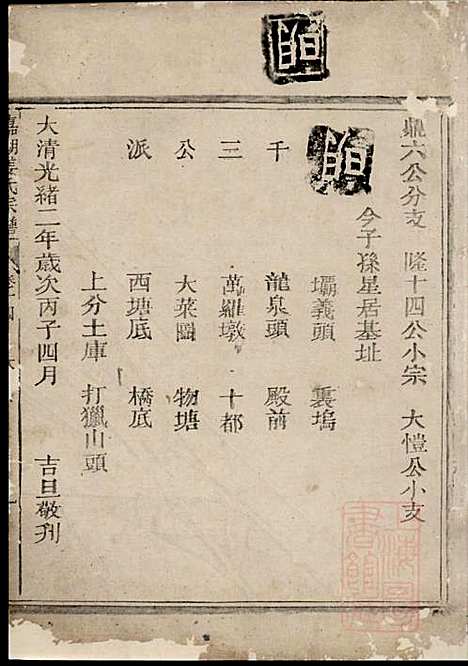 鼎六公分支 隆十四公小宗 大愷公小支
今子孫星居基址
壩義頭 裏塢
千 龍泉頭 殿前
三 萬羅墩 十都
公 大菜園 物塘
派 西塘底 橋底
上分土庫 打獵山頭
大清光緒二年歲次丙子四月 吉旦敬刊
氏宗譜